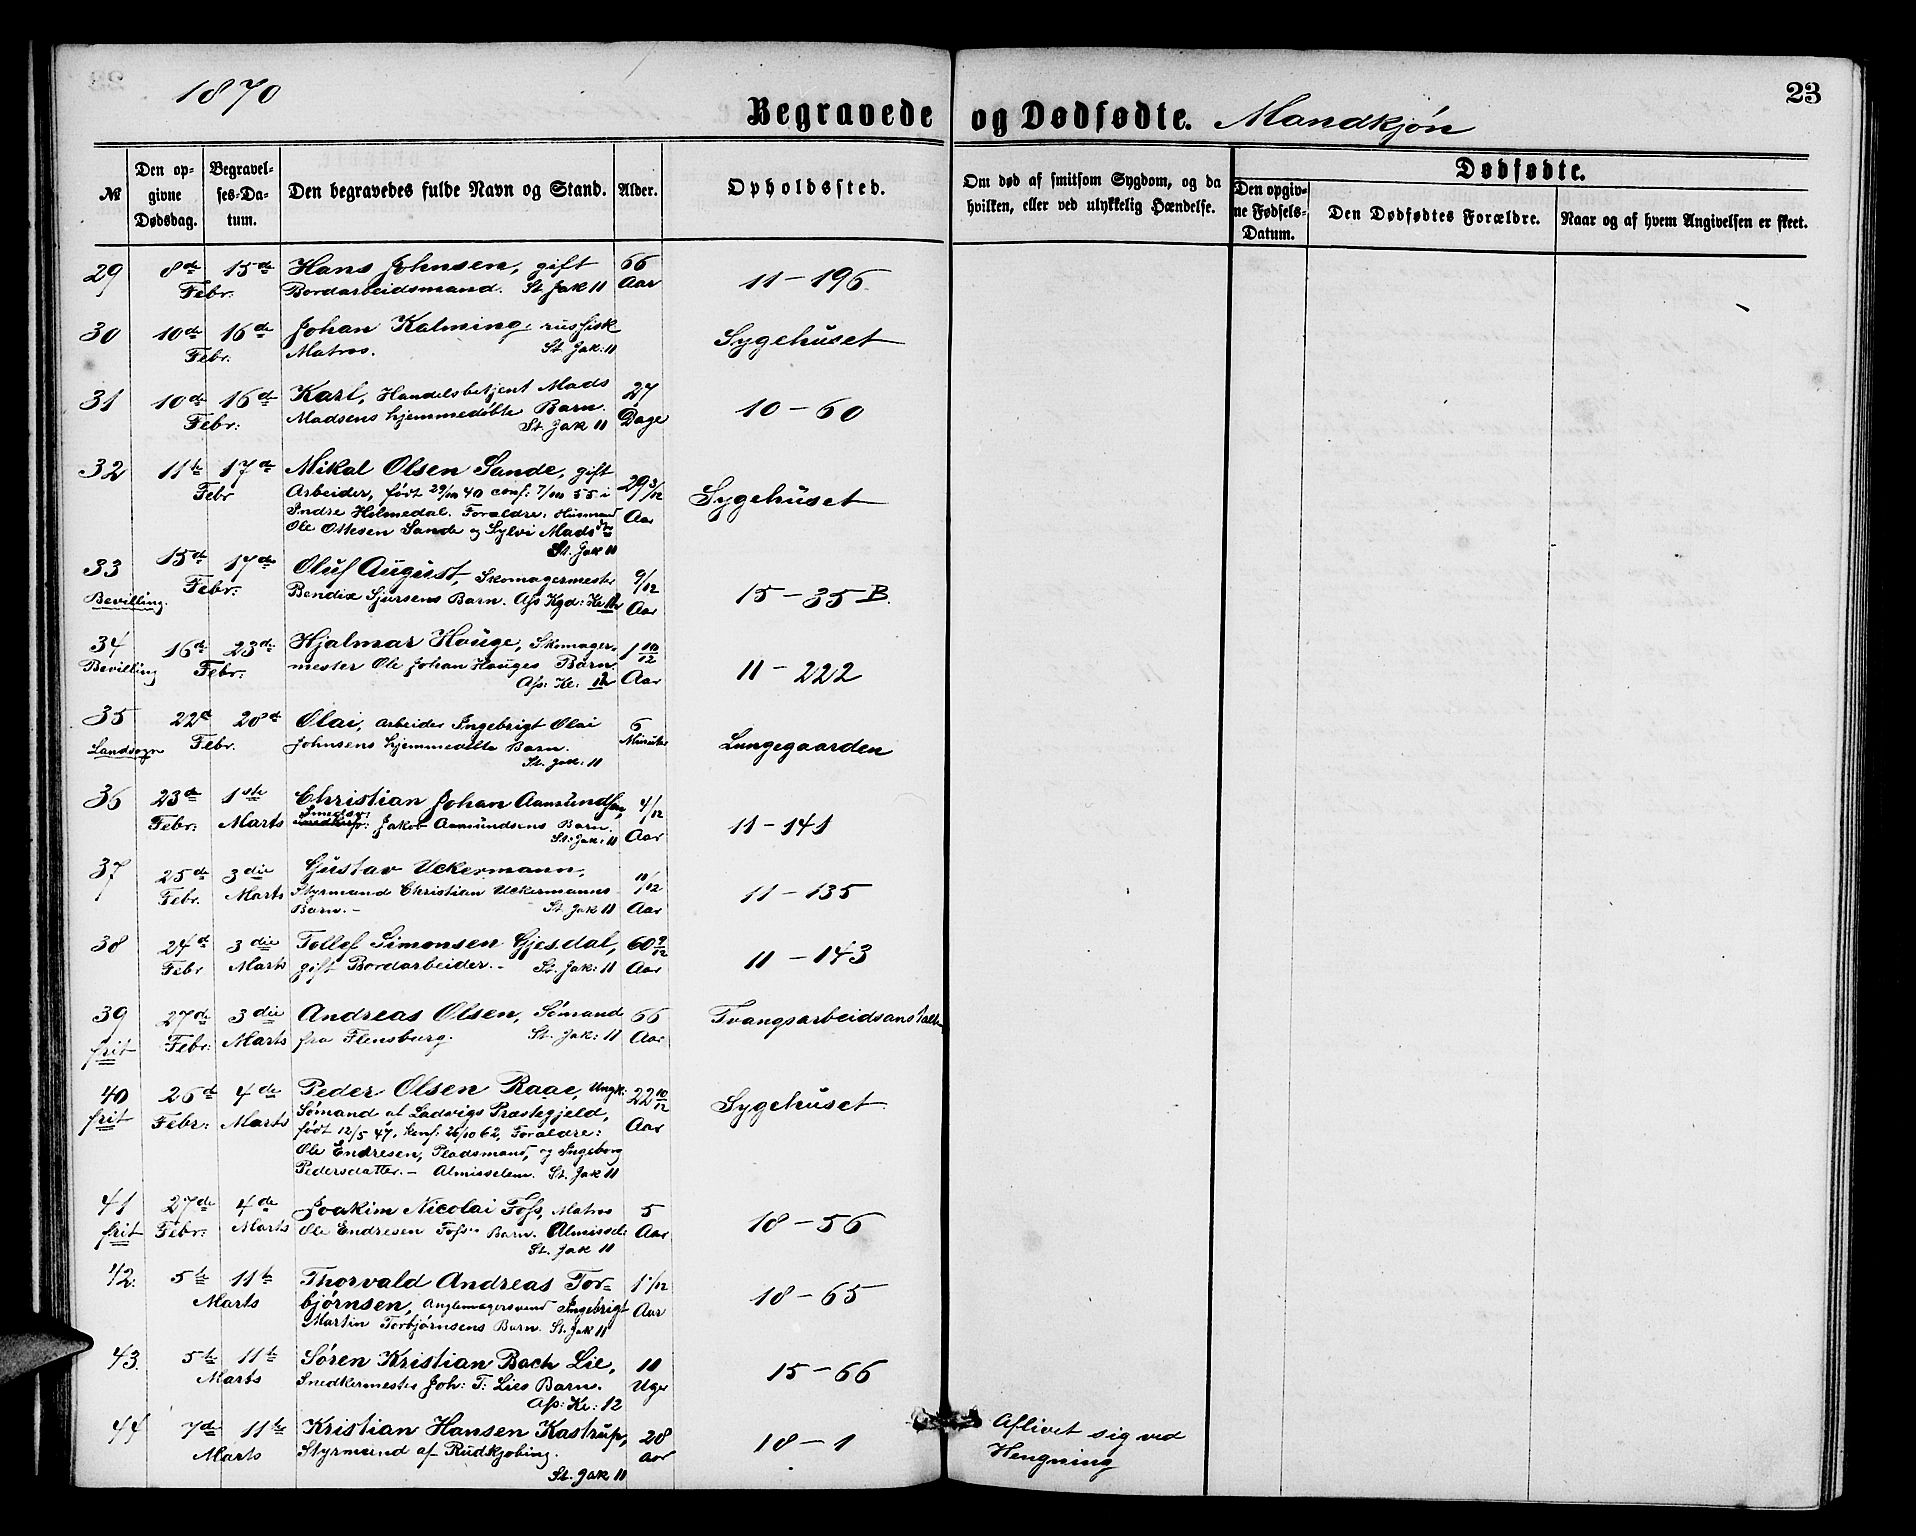 1870
Begravede og Dødfødte. Mandkjøn
23
№
Den opgivne Dødsdag.
Begravelses-Datum.
Den begravedes fulde Navn og Stand.
Alder.
Opholdssted.
Om død af smitsom Sygdom, og da hvilken, eller ved ulykkelig Hændelse.
Dødfødte.
Den opgivne Fødsels-Datum.
Den Dødfødtes Forældre.
Naar og af hvem Angivelsen er skeet.
29 8de 15de Hans Johnsen, gift 66
Febr. Bordarbeidsmand. St. Jak 11 Aar 11-196
30 10de 16de Johan Kalming, russisk Sygehuset
Febr. Matros. St. Jak: 11
31 10de 16de Karl, Handelsbetjent Mads 27
Febr: Madsens hjemmedøbte Barn. Dage 10-60
St. Jak 11
32 11te 17de Mikal Olsen Sande, gift 29 3/12
Febr Arbeider, født 29/10 40 conf: 7/10 55 i Sygehuset
Indre Holmedal. Forældre: Husmand Aar
Ole Ottesen Sande og Sylvi Madsdtr
St. Jak 11
33 15de 17de Oluf August, Skomagermester 9/12
Bevilling. Febr: Bendix Sjursens Barn. Ass Kgd: Kl 12 Aar 15-35 B.
34 16de 23de Hjalmar Houge, Skomager- 1 10/12
Bevilling Febr. mester Ole Johan Houges Barn. 11-222
Ass: Kl: 12 Aar
35 22d 28de Olai, Arbeider Ingebrigt Olai 6
Landsogn Febr. Johnsens hjemmedøbte Barn. Minuter Lungegaarden
St. Jak: 11
36 23de 1ste Christian Johan Aamundsen, 4/12
Febr: Marts Jakob Aamundsens Barn. 11-141
St: Jak: 11 Aar
37 25de 3die Gustav Uckermann, 11/12
Febr. Marts Styrmand Christian Uckermanns 11-135
Barn.- St. Jak 11 Aar
38 24d 3die Tollef Simonsen Gjesdal, 60 9/12
Febr Marts gift Bordarbeider.- St. Jak: 11 Aar 11-143
39 27de 3die Andreas Olsen, Sømand 66 Tvangsarbeidsanstalt
frit Febr: Marts fra Flensburg. St. Jak: 11 Aar
40 26d 4de Peder Olsen Raae, Ungk: 22 10/12
frit Febr: Marts Sømand af Ladvigs Præstegjeld, Sygehuset
født 12/5 47, konf: 26/10 62, Forældre: Aar
Ole Endresen, Pladsmand, og Ingeborg
Pedersdatter.- Almisselem. St. Jak 11
41 27de 4de Joakim Nicolai Foss, Matros 5
frit Febr: Marts Ole Endresen Foss' Barn. Almissel: Aar 18-56
St. Jak 11
42. 5te 11te Thorvald Andreas Tor- 1 1/12
Marts bjørnsen, Anglemagersvend Ingebrigt Aar 18-65
Martin Torbjørnsens Barn. St. Jak 11
43. 5te 11te Søren Kristian Bach Lie, 11
Marts Snedkermester Joh: T: Lies Barn. Uger 15-66
Ass: Kl: 12
44 7de 11te Kristian Hansen Kastrup, 28 Aflivet sig ved
Marts Styrmand af Rudkjøbing. Aar 18-1 Hengning
St. Jak 11